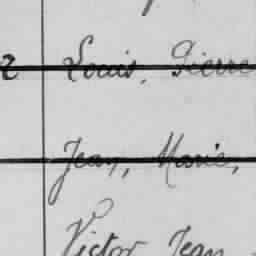 2 Louis, Pierre
Jean, Marie,
Victor Jean